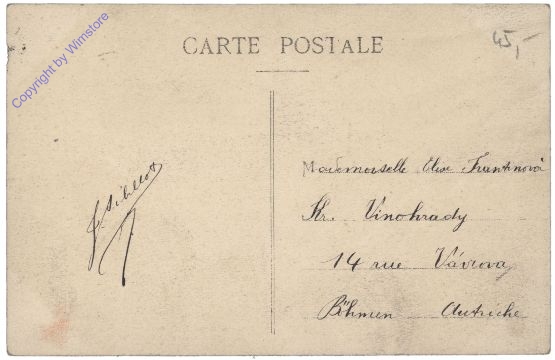 Copyright by Wimstore
CARTE POSTALE
45,-
Mademoiselle Elise
Kr. Vinohrady
14 rue Vávrova
Böhmen Autriche